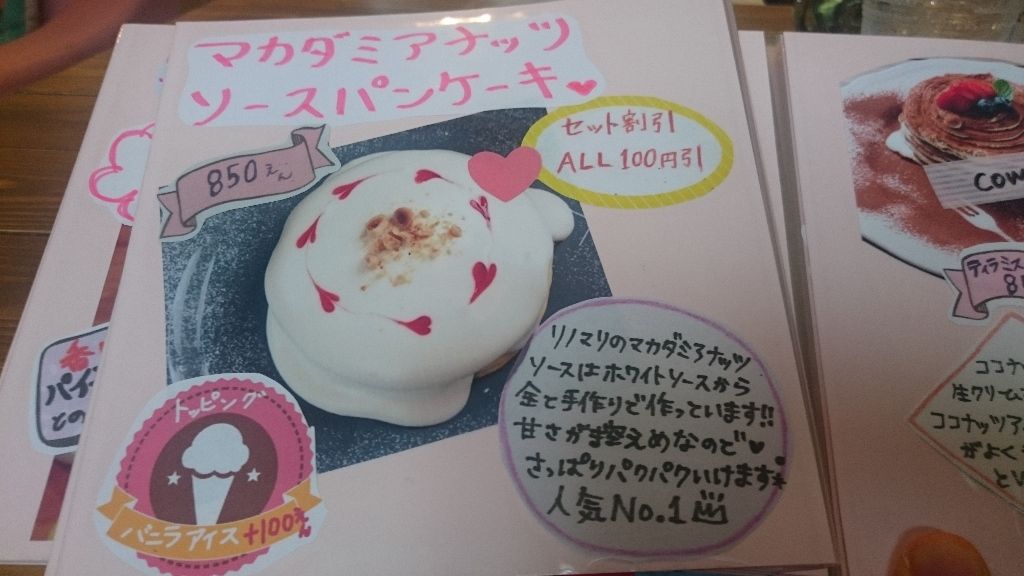 マカダミアナッツ
ソースパンケーキ♥
850えん
セット割引
ALL 100円引
リノマリのマカダミアナッツ
ソースはホワイトソースから
全と手作りで作っています!!
甘さが控えめなので♥
さっぱりパクパクいけます
人気No.1
トッピング
バニラアイス +100えん
パイ
との
COW
ティラミス
8
ココナ
生クリーム
ココナッツア
がよく
とい